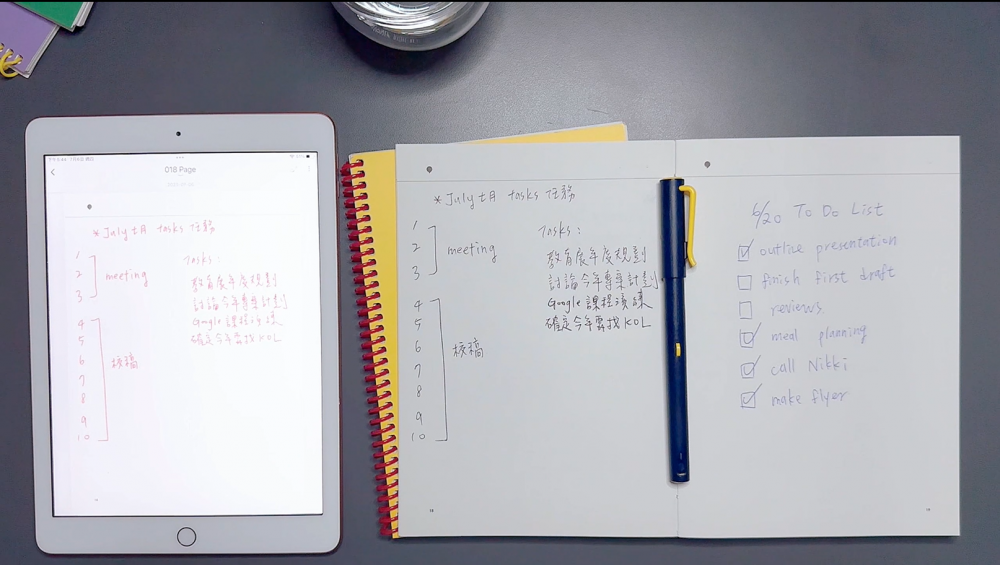 018 Page
*July 七月 tasks 任務
1
2 meeting
3
4
5
6 校稿
7
8
9
10
Tasks:
教育展年度規劃
討論今年專案計劃
Google 課程
確定今年要找 KOL
*July 七月 tasks 任務
1
2 meeting
3
4
5
6 校稿
7
8
9
10
Tasks:
教育展年度規劃
討論今年專案計劃
Google 課程
確定今年要找 KOL
6/20 To Do List
outline presentation
finish first draft
reviews.
meal planning
call Nikki
make flyer